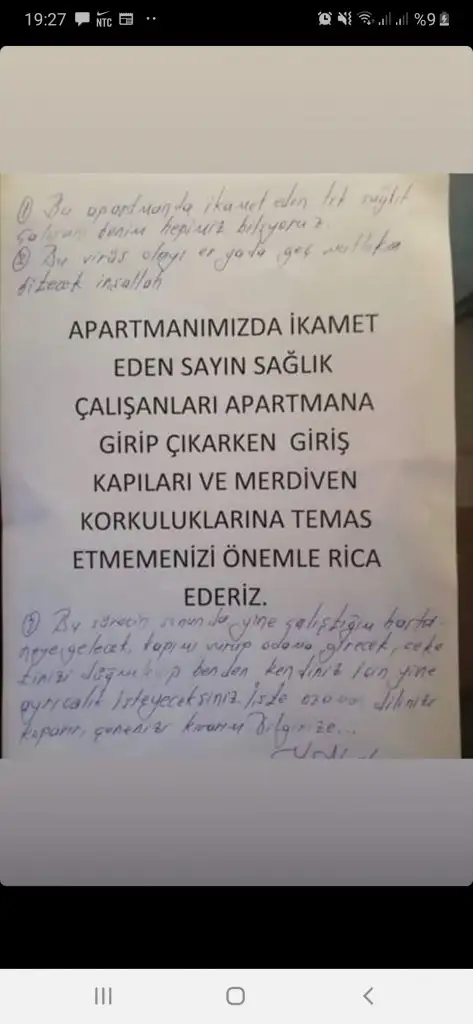 19:27 NTC %9
① Bu apartmanda ikamet eden tek sağlık
çalışanı benim hepimiz biliyoruz.
② Bu virüs olayı er yada geç mutlaka
bitecek inşallah
APARTMANIMIZDA İKAMET
EDEN SAYIN SAĞLIK
ÇALIŞANLARI APARTMANA
GİRİP ÇIKARKEN GİRİŞ
KAPILARI VE MERDİVEN
KORKULUKLARINA TEMAS
ETMEMENİZİ ÖNEMLE RİCA
EDERİZ.
③ Bu sürecin sonunda yine çalıştığım hasta-
neye gelecek, kapımı vurup odama girecek, ceke
tinizi düğmeleyip benden kendiniz için yine
ayrıcalık isteyeceksiniz. İşte o zaman dilinizi
koparır, çenenizi kırarım Bilginize...